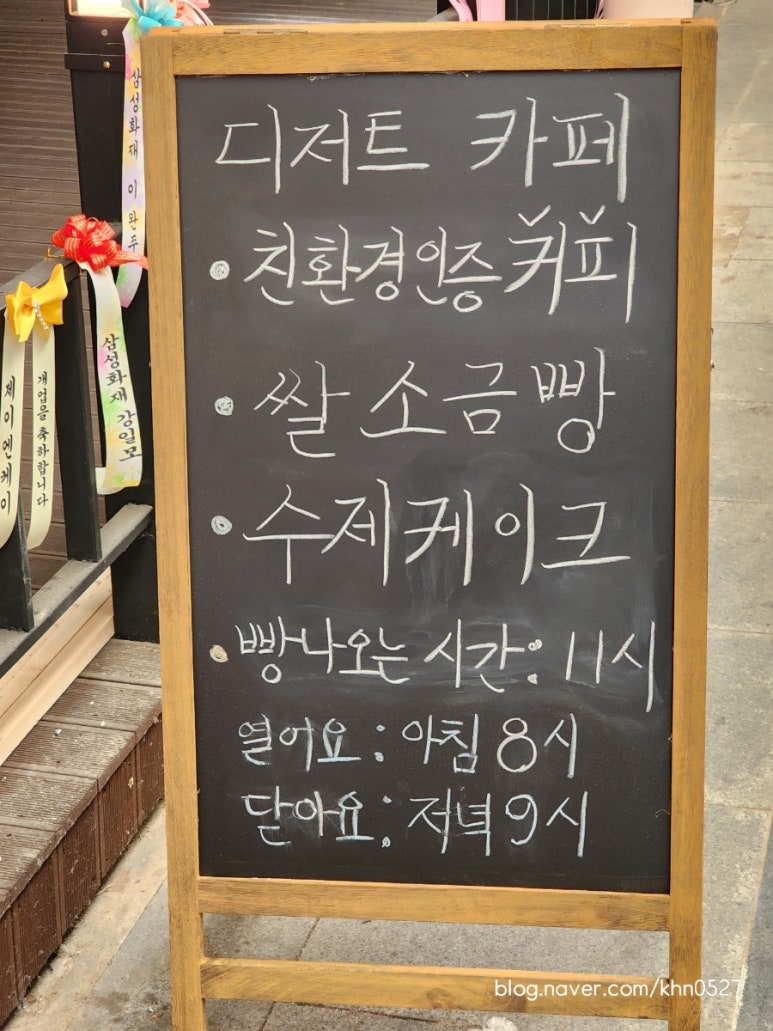 디저트 카페
• 친환경인증 커피
• 쌀소금빵
• 수제케이크
• 빵나오는 시간: 11시
열어요 : 아침 8시
닫아요 : 저녁 9시
삼성화재 이완주
삼성화재 강일모
개업을 축하합니다
제이엔케이
blog.naver.com/khn0527